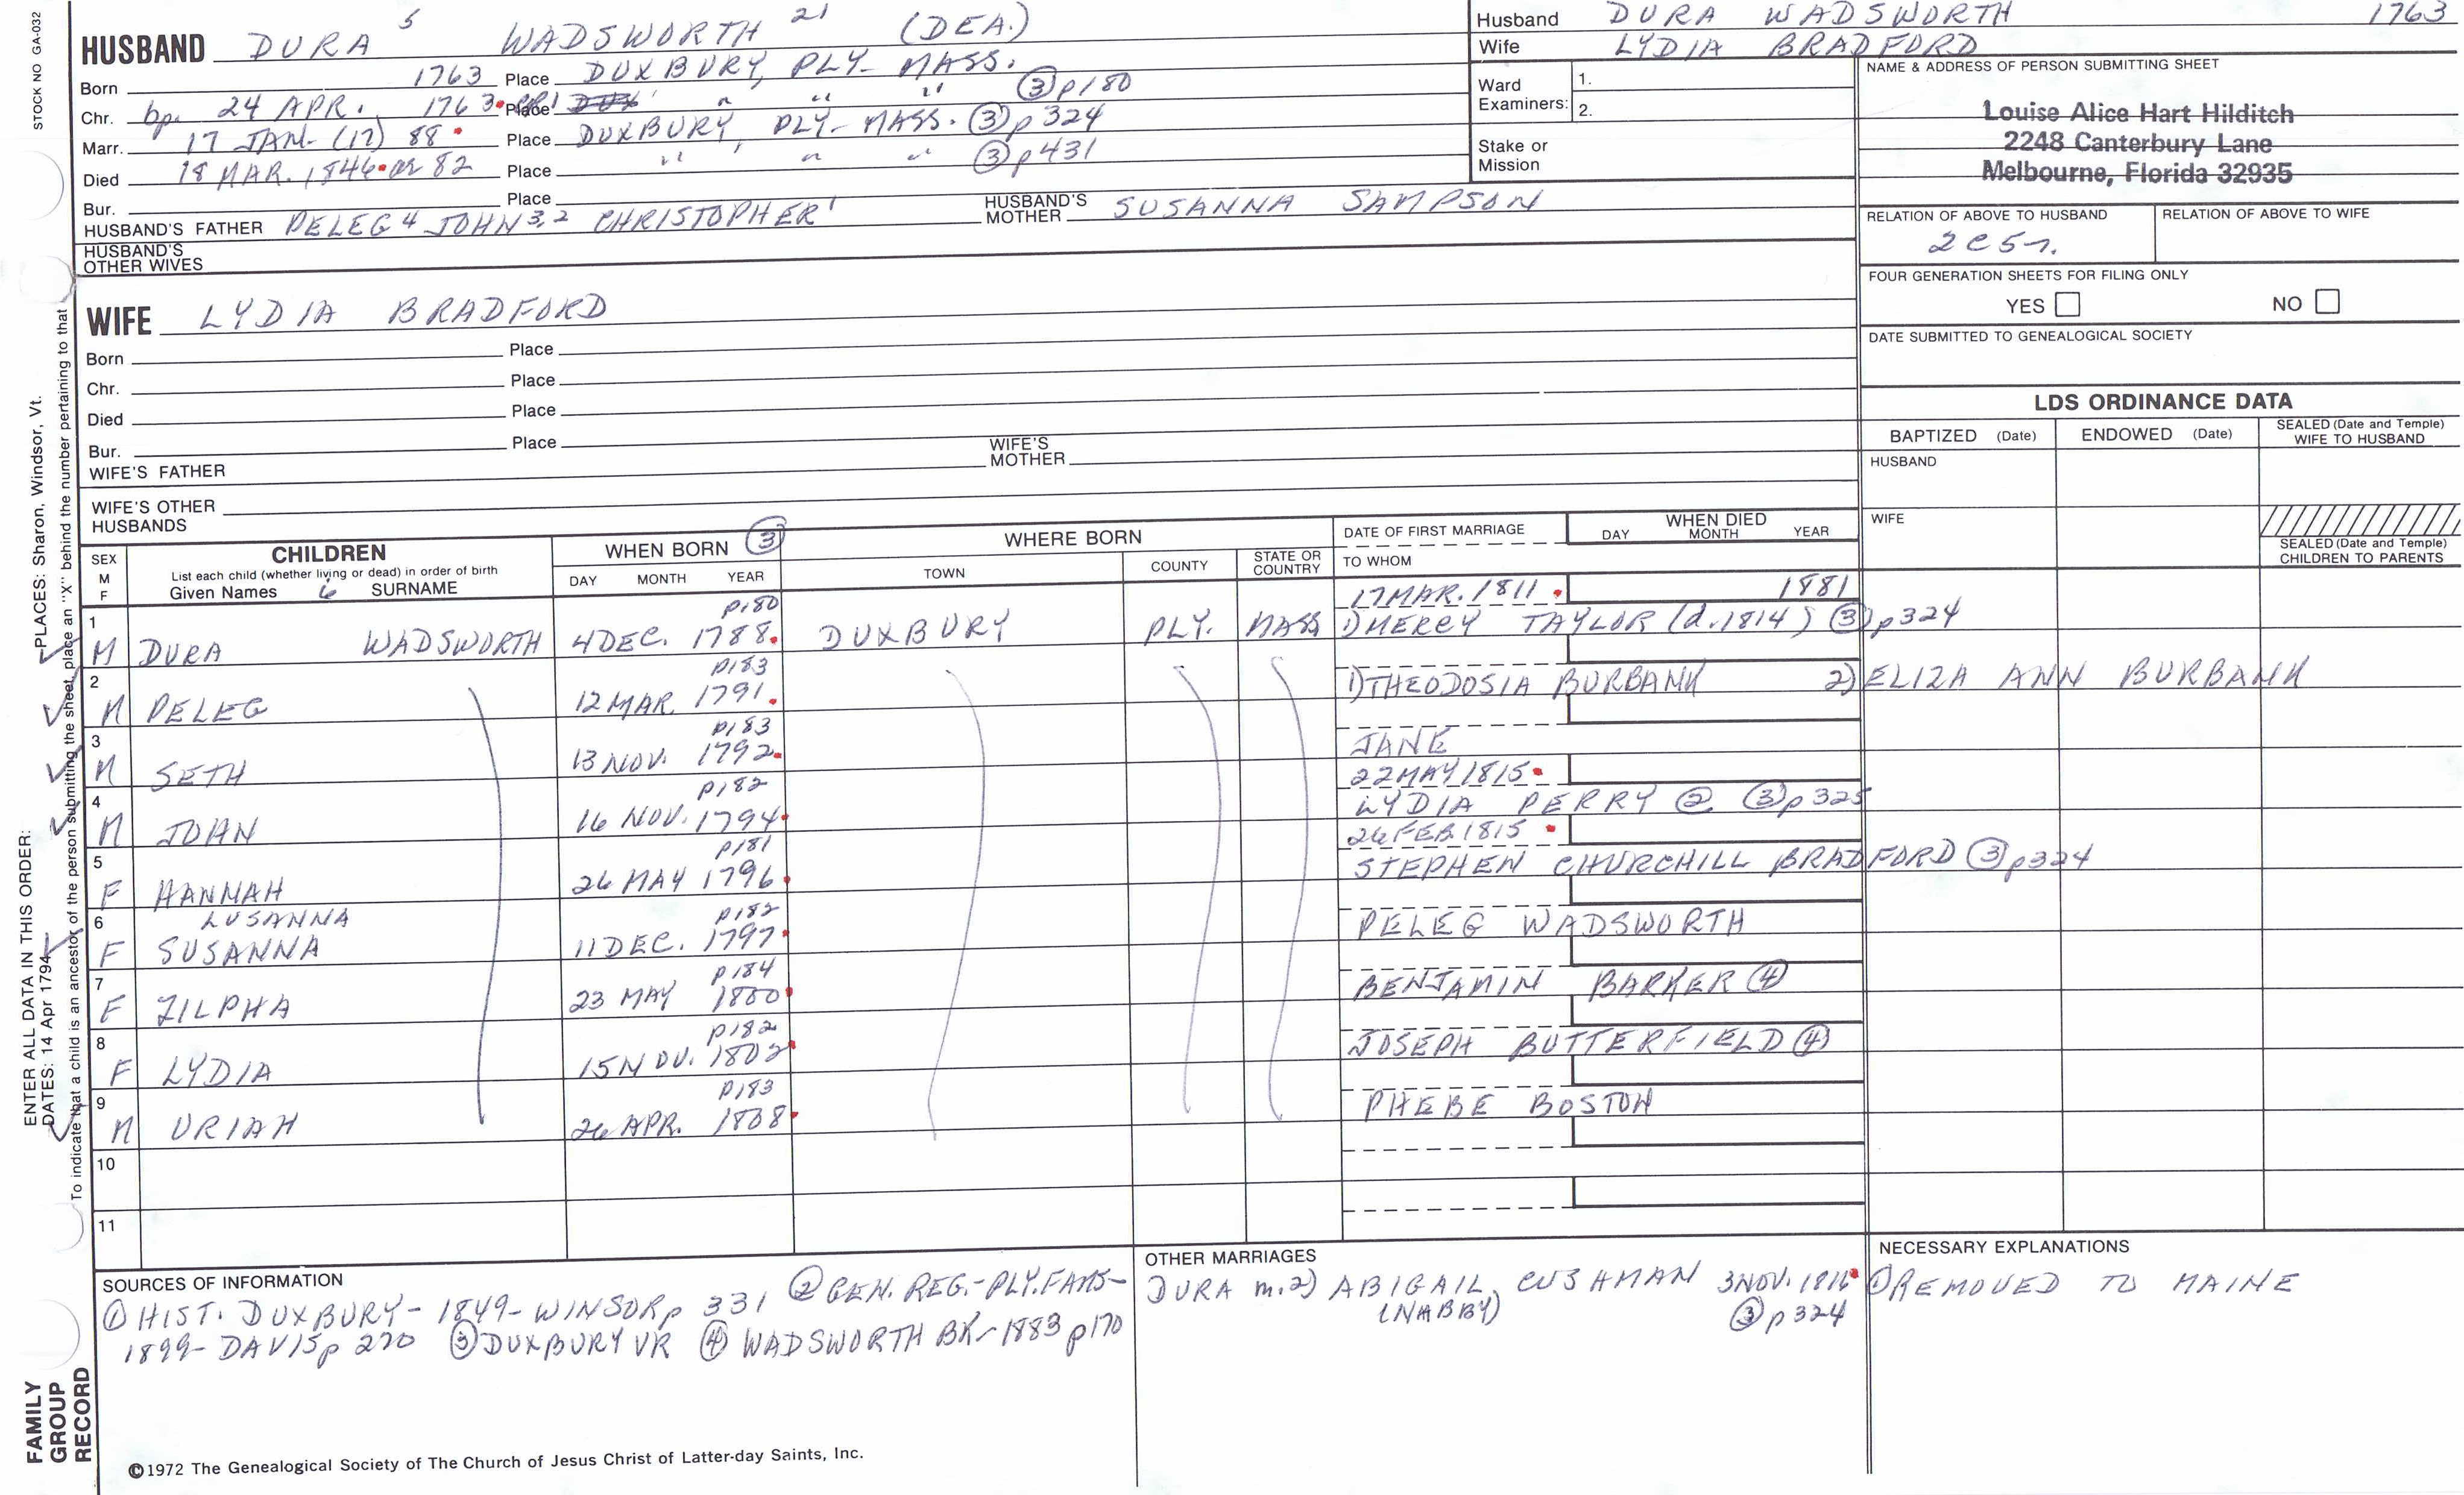 STOCK NO GA-032
HUSBAND DURA 5 WADSWORTH 21 (DEA.)
Born 1763 Place DUXBURY, PLY- MASS.
Chr. bp. 24 APR. 1763 Place " " " ③ p180
Marr. 17 JAN- (17) 88 Place DUXBURY, PLY- MASS. ③ p 324
Died 18 MAR. 1846 ae 82 Place " " " ③ p431
Bur. Place
HUSBAND'S FATHER PELEG 4 JOHN 3,2 CHRISTOPHER 1 HUSBAND'S MOTHER SUSANNA SAMPSON
HUSBAND'S OTHER WIVES
WIFE LYDIA BRADFORD
Born Place
Chr. Place
Died Place
Bur. Place
WIFE'S FATHER WIFE'S MOTHER
WIFE'S OTHER HUSBANDS
Husband DURA WADSWORTH 1763
Wife LYDIA BRADFORD
Ward Examiners: 1.
2.
Stake or Mission
NAME & ADDRESS OF PERSON SUBMITTING SHEET
Louise Alice Hart Hilditch
2248 Canterbury Lane
Melbourne, Florida 32935
RELATION OF ABOVE TO HUSBAND RELATION OF ABOVE TO WIFE
2C5r.
FOUR GENERATION SHEETS FOR FILING ONLY
YES NO
DATE SUBMITTED TO GENEALOGICAL SOCIETY
LDS ORDINANCE DATA
BAPTIZED (Date) ENDOWED (Date) SEALED (Date and Temple) WIFE TO HUSBAND
HUSBAND
WIFE
SEALED (Date and Temple) CHILDREN TO PARENTS
SEX M F CHILDREN WHEN BORN ③ WHERE BORN DATE OF FIRST MARRIAGE WHEN DIED
List each child (whether living or dead) in order of birth
Given Names 6 SURNAME DAY MONTH YEAR TOWN COUNTY STATE OR COUNTRY TO WHOM DAY MONTH YEAR
p180 17 MAR. 1811 1881
1 M DURA WADSWORTH 4 DEC. 1788 DUXBURY PLY. MASS 1) MERCY TAYLOR (d. 1814) ③ p324
p183
2 M PELEG 12 MAR. 1791 1) THEODOSIA BURBANK 2) ELIZA ANN BURBANK
p183
3 M SETH 13 NOV. 1792 JANE
p182 22 MAY 1815
4 M JOHN 16 NOV. 1794 LYDIA PERRY ② ③ p325
p181 26 FEB 1815
5 F HANNAH 26 MAY 1796 STEPHEN CHURCHILL BRADFORD ③ p324
LUSANNA p182
6 F SUSANNA 11 DEC. 1797 PELEG WADSWORTH
p184
7 F ZILPHA 23 MAY 1800 BENJAMIN BARKER ④
p182
8 F LYDIA 15 NOV. 1802 JOSEPH BUTTERFIELD ④
p183
9 M URIAH 26 APR. 1808 PHEBE BOSTON
10
11
SOURCES OF INFORMATION
① HIST. DUXBURY- 1849- WINSOR p 331 ② GEN. REG.-PLY. FAMS-
1899- DAVIS p 270 ③ DUXBURY VR ④ WADSWORTH BK- 1883 p170
OTHER MARRIAGES
DURA m. 2) ABIGAIL CUSHMAN 3 NOV. 1816
(NABBY) ③ p 324
NECESSARY EXPLANATIONS
① REMOVED TO MAINE
ENTER ALL DATA IN THIS ORDER:
DATES: 14 Apr 1794
PLACES: Sharon, Windsor, Vt.
To indicate that a child is an ancestor of the person submitting the sheet, place an "X" behind the number pertaining to that
FAMILY GROUP RECORD
©1972 The Genealogical Society of The Church of Jesus Christ of Latter-day Saints, Inc.